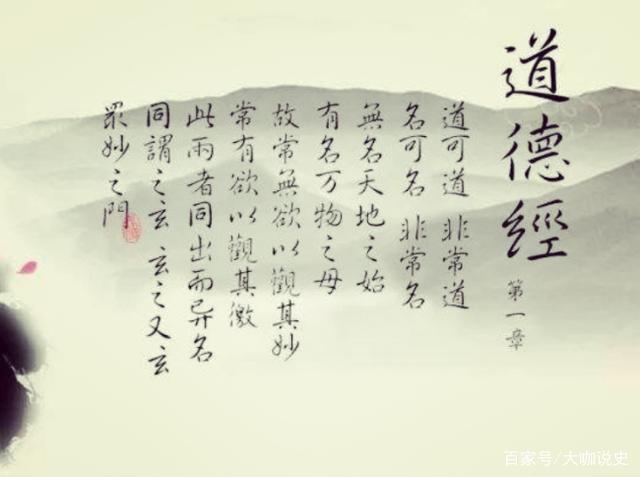 道德經
第一章
道可道 非常道
名可名 非常名
無名天地之始
有名万物之母
故常無欲以觀其妙
常有欲以觀其徼
此兩者同出而异名
同謂之玄 玄之又玄
眾妙之門
百家号/大咖说史